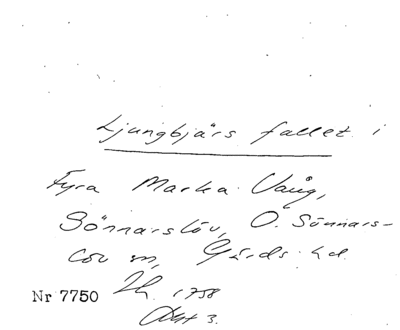 Ljungbjärs fallet i
Fyra Marka Vång,
Sönnarslöv, Ö. Sönnars-
löv sn, Gärds hd.
Nr 7750 1758
Akt 3.